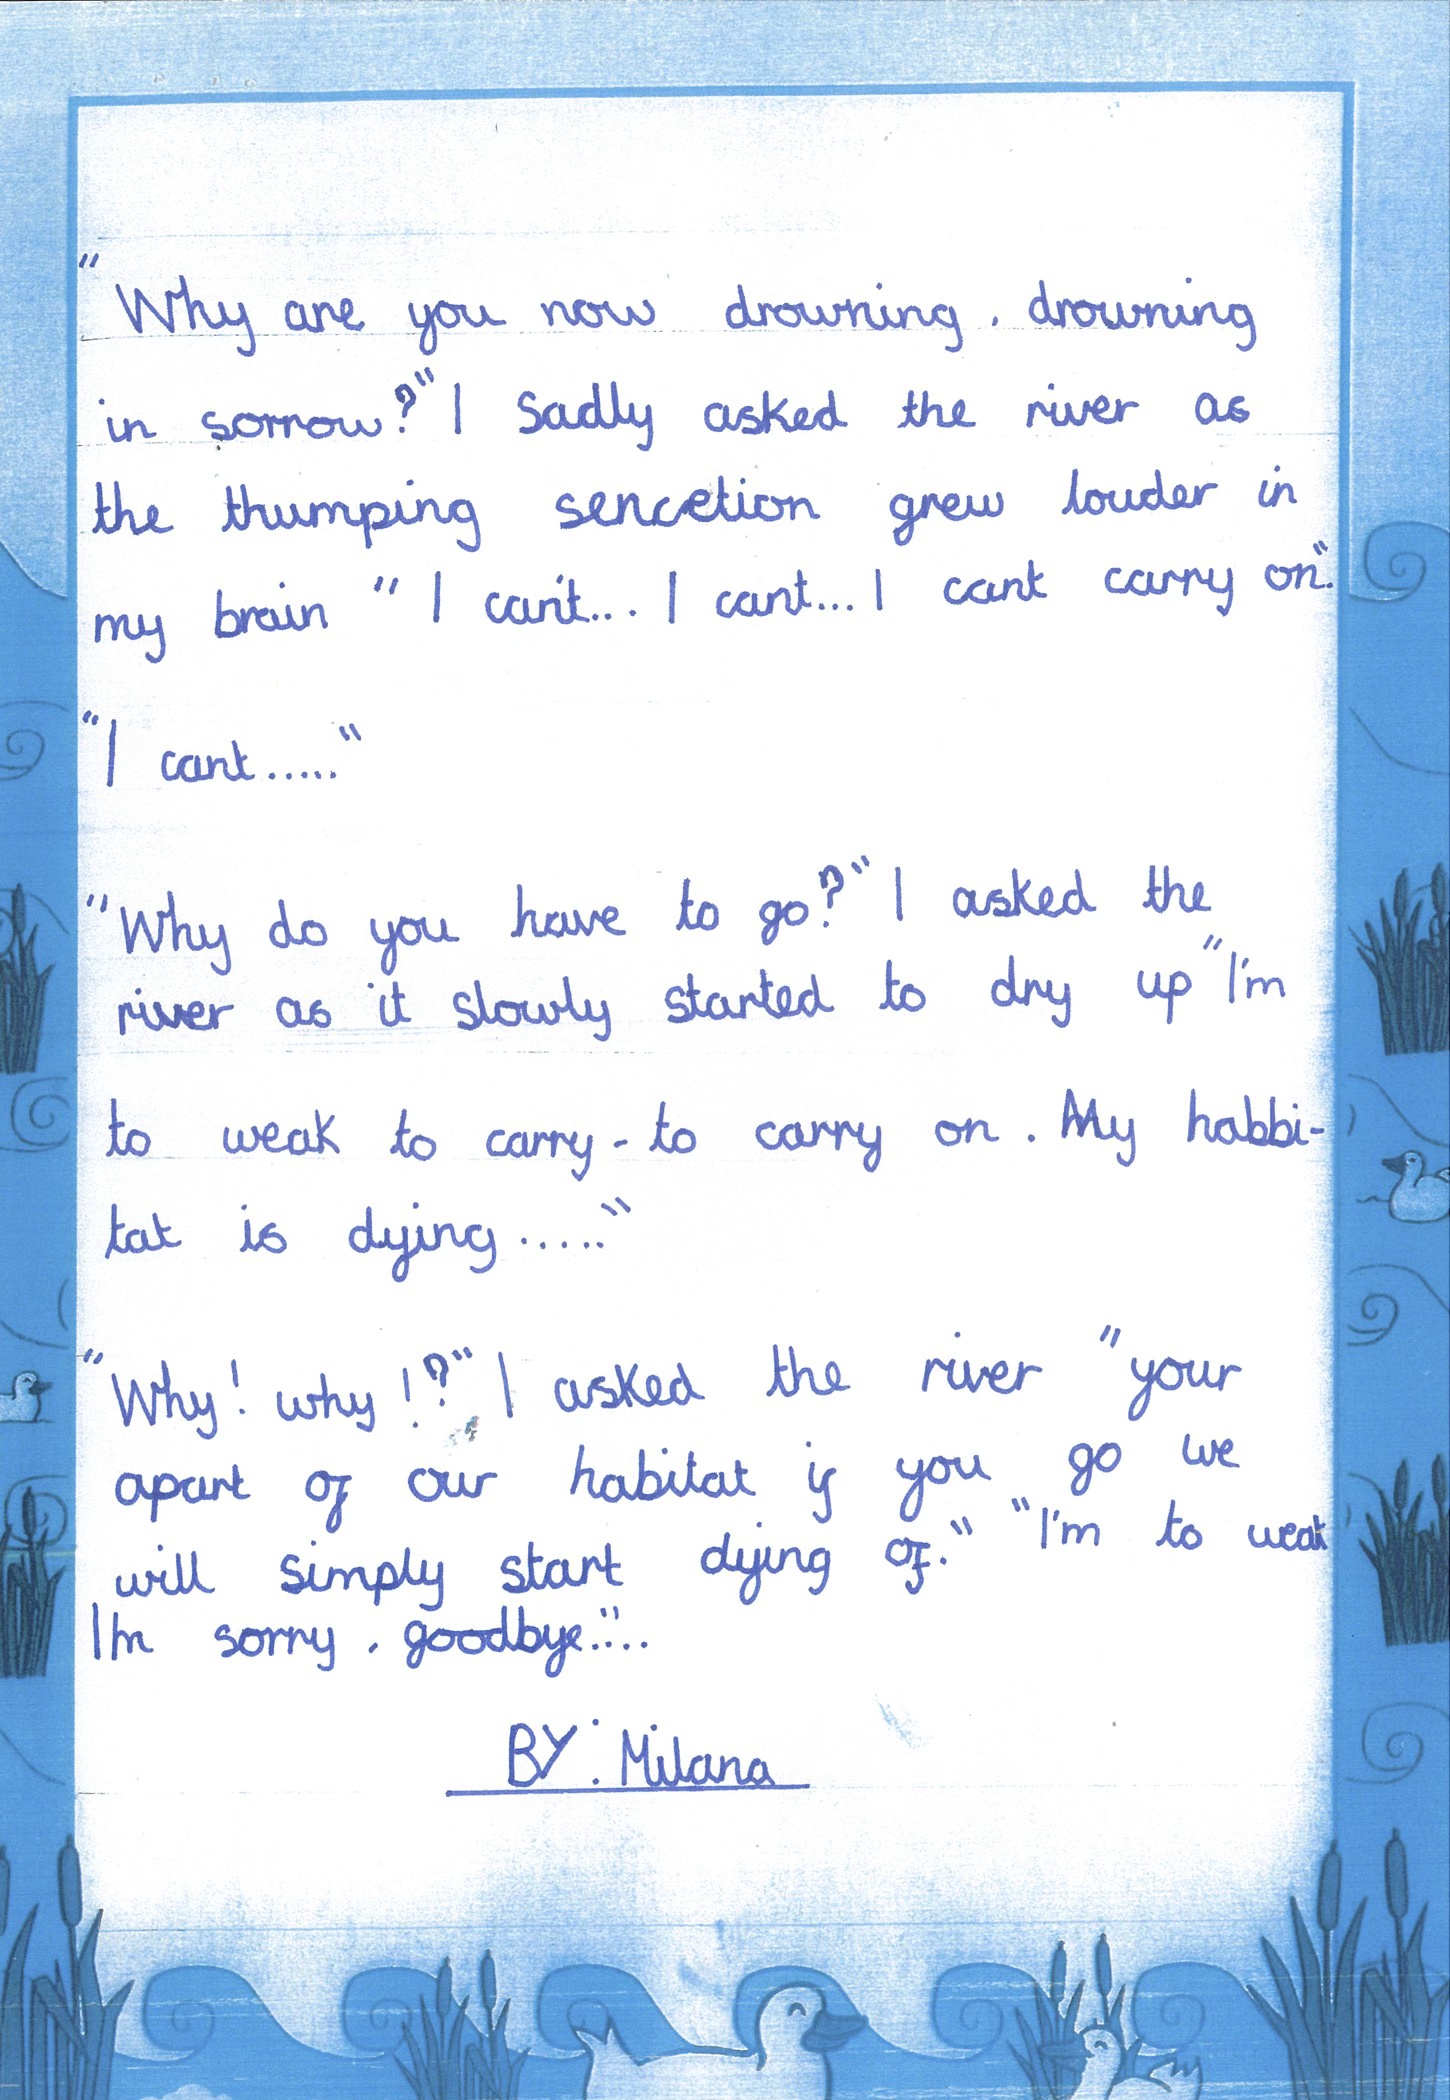 "Why are you now drowning. drowning
in sorrow?" I Sadly asked the river as
the thumping sencetion grew louder in
my brain " I can't... I cant... I cant carry on."
"I cant....."
"Why do you have to go?" I asked the
river as it slowly started to dry up "I'm
to weak to carry - to carry on. My habbi-
tat is dying ....."
"Why! why!?" I asked the river "your
apart of our habitat if you go we
will simply start dying of." "I'm to weak
I'm sorry. goodbye."...
BY: Milana